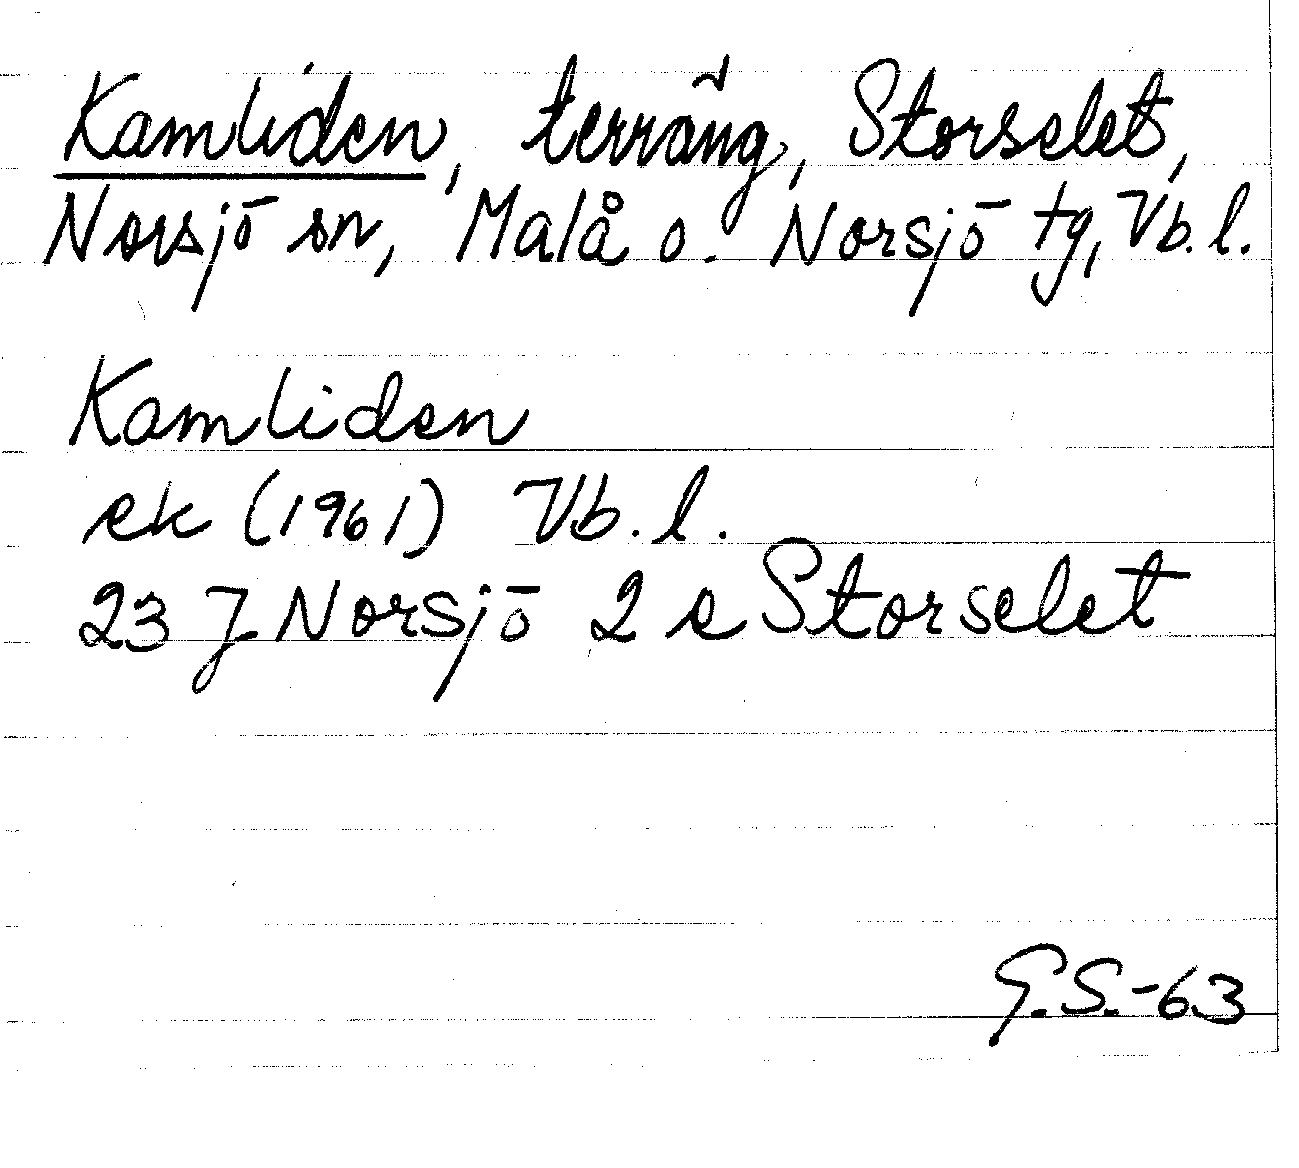 Kamliden, terräng, Storselet,
Norsjö sn, Malå o. Norsjö tg, Vb. l.
Kamliden
ek (1961) Vb. l.
23 J Norsjö 2 e Storselet
G.S.-63